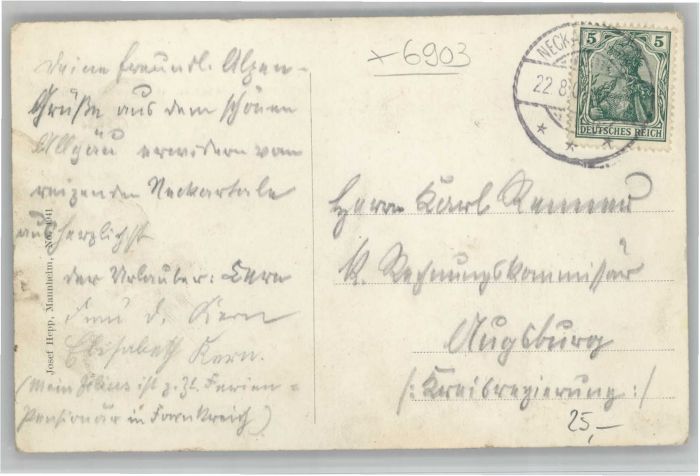 Deine freundl. Alpen-
Grüße aus dem schönen
Allgäu erwidern vom
reizenden Neckartale
aus herzlichst
der Urlauber: Kern
Frau d. Kern
Elisabeth Kern.
(Mein Julius ist z. Zt. Ferien-
Pensionär in Frankreich)
Josef Hepp, Mannheim, No.
×6903
NECKA
22 8
5 5
DEUTSCHES REICH
Herrn Karl
K. Rechnungskommissär
Augsburg
/: Kreisregierung :/
25,-